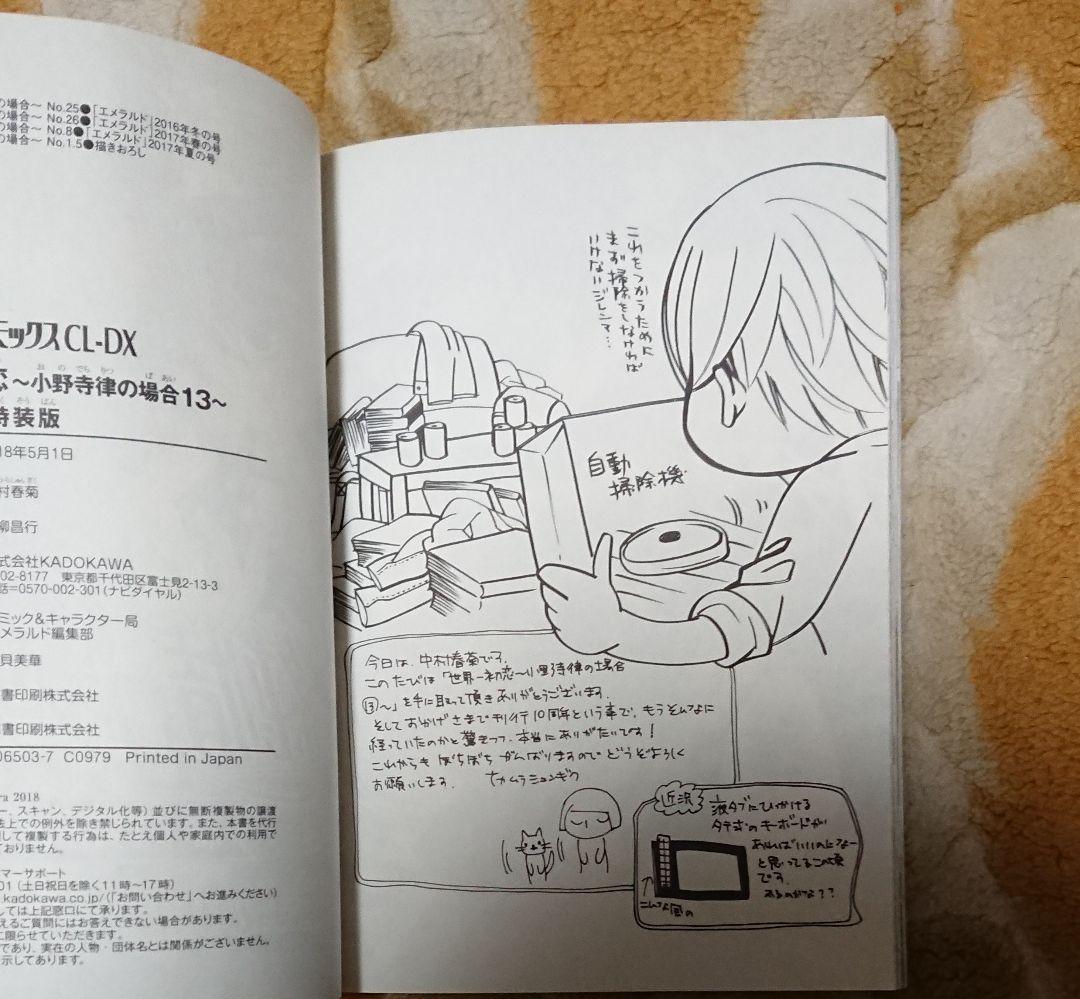 の場合～ No.25●「エメラルド」2016年冬の号
の場合～ No.26●「エメラルド」2017年春の号
の場合～ No.8●「エメラルド」2017年夏の号
の場合～ No.1.5●描きおろし
ミックスCL-DX
恋～小野寺律の場合13～
お の でら りつ ば あい
特装版
とく そう ばん
18年5月1日
村春菊
柳昌行
式会社KADOKAWA
02-8177 東京都千代田区富士見2-13-3
話=0570-002-301(ナビダイヤル)
ミック&キャラクター局
メラルド編集部
貝美華
書印刷株式会社
書印刷株式会社
06503-7 C0979 Printed in Japan
ra 2018
ー、スキャン、デジタル化等)並びに無断複製物の譲渡
法上での例外を除き禁じられています。また、本書を代行
頼して複製する行為は、たとえ個人や家庭内での利用で
ておりません。
マーサポート
01(土日祝日を除く11時～17時)
.kadokawa.co.jp/(「お問い合わせ」へお進みください)
しては上記窓口にて承ります。
えるご質問にはお答えできない場合があります。
に限らせていただきます。
であり、実在の人物・団体名とは関係がございません。
示してあります。
これをつかうために
まず掃除をしなければ
いけないジレンマ…
自動
掃除機
今日は、中村春菊です。
このたびは「世界一初恋～小野寺律の場合
⑬～」を手に取って頂きありがとうございます。
そしておかげさまで刊行10周年という事で、もうそんなに
経っていたのかと驚きつつ、本当にありがたいです！
これからもぼちぼちがんばりますのでどうぞよろしく
お願いします。 ナカムラシュンギク
近況
液タブにひっかける
タテ式のキーボードが
あればいいのになー
と思ってるこの頃
です。
あるのかな？？
こんな風の